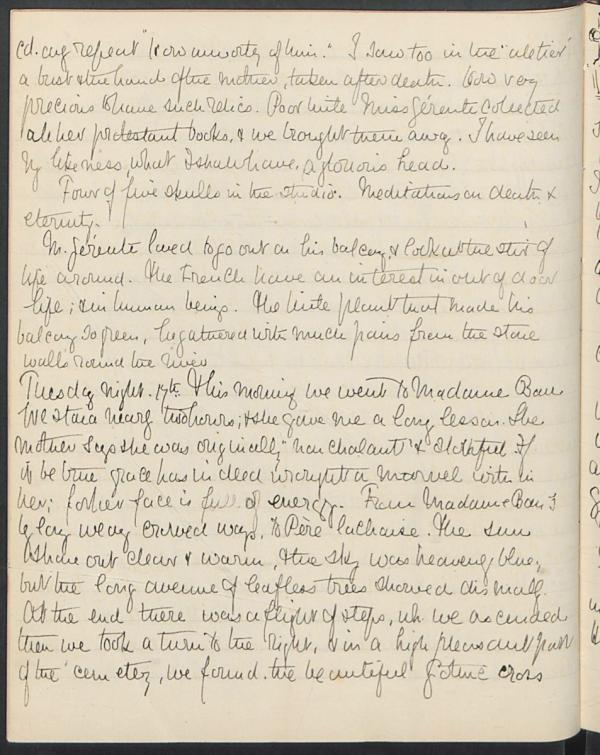 cd. only repeat "I am unworthy of him." I saw too in the "atelier"
a bust & the hand of the mother, taken after death. How very
precious to have such relics. Poor little Miss Gérente collected
all her protestant books, & we brought them away. I have seen
my likeness, what I shall have, a glorious head.
Four or five skulls in the studio. Meditations on death &
eternity.
M. Gérente loved to go out on his balcony & look at the stir of
life around. The French have an interest in out of door
life; & in human beings. The little plant that made his
balcony so green, he gathered with much pains from the stone
walls round the river
Tuesday night. 17th. & this morning we went to Madame Bau
We staid nearly two hours; & she gave me a long lesson. She
mother says she was originally "nonchalant" & slothful. If
it be true grace has indeed wrought a marvel within
her; for her face is full of energy. From Madame Bau's
by long weary crooked ways, to Père Lachaise. The sun
shone out clear & warm, & the sky was heavenly blue;
but the long avenue of leafless trees showed dismally.
At the end there was a flight of steps, wh. we ascended
then we took a turn to the right, & in a high pleasant part
of the cemetery, we found the beautiful Gothic cross